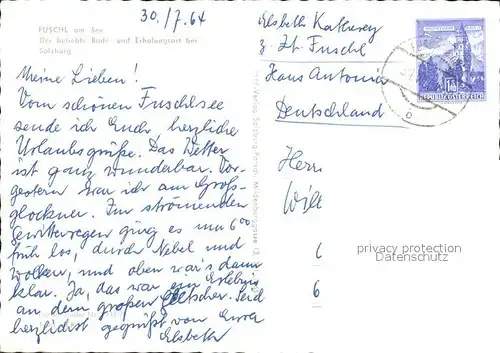 30./7.64
FUSCHL am See
Der beliebte Bade- und Erholungsort bei
Salzburg
Meine Lieben!
Vom schönen Fuschlsee
sende ich Euch, herzliche
Urlaubsgrüße. Das Wetter
ist ganz wunderbar. Vor-
gestern war ich am Groß-
glockner. Im strömenden
Gewitterregen ging es um 6.00
früh los, durch Nebel und
Wolken, und oben war's dann
klar. Ja, das war ein Erlebnis
an dem großen Gletscher. Seid
herzlichst gegrüßt von Eurer
Elsbeth
Elsbeth
z. Zt. Fuschl
Haus Antonia
Deutschland
REPUBLIK ÖSTERREICH
Herrn
Wil
6
privacy protection
Datenschutz